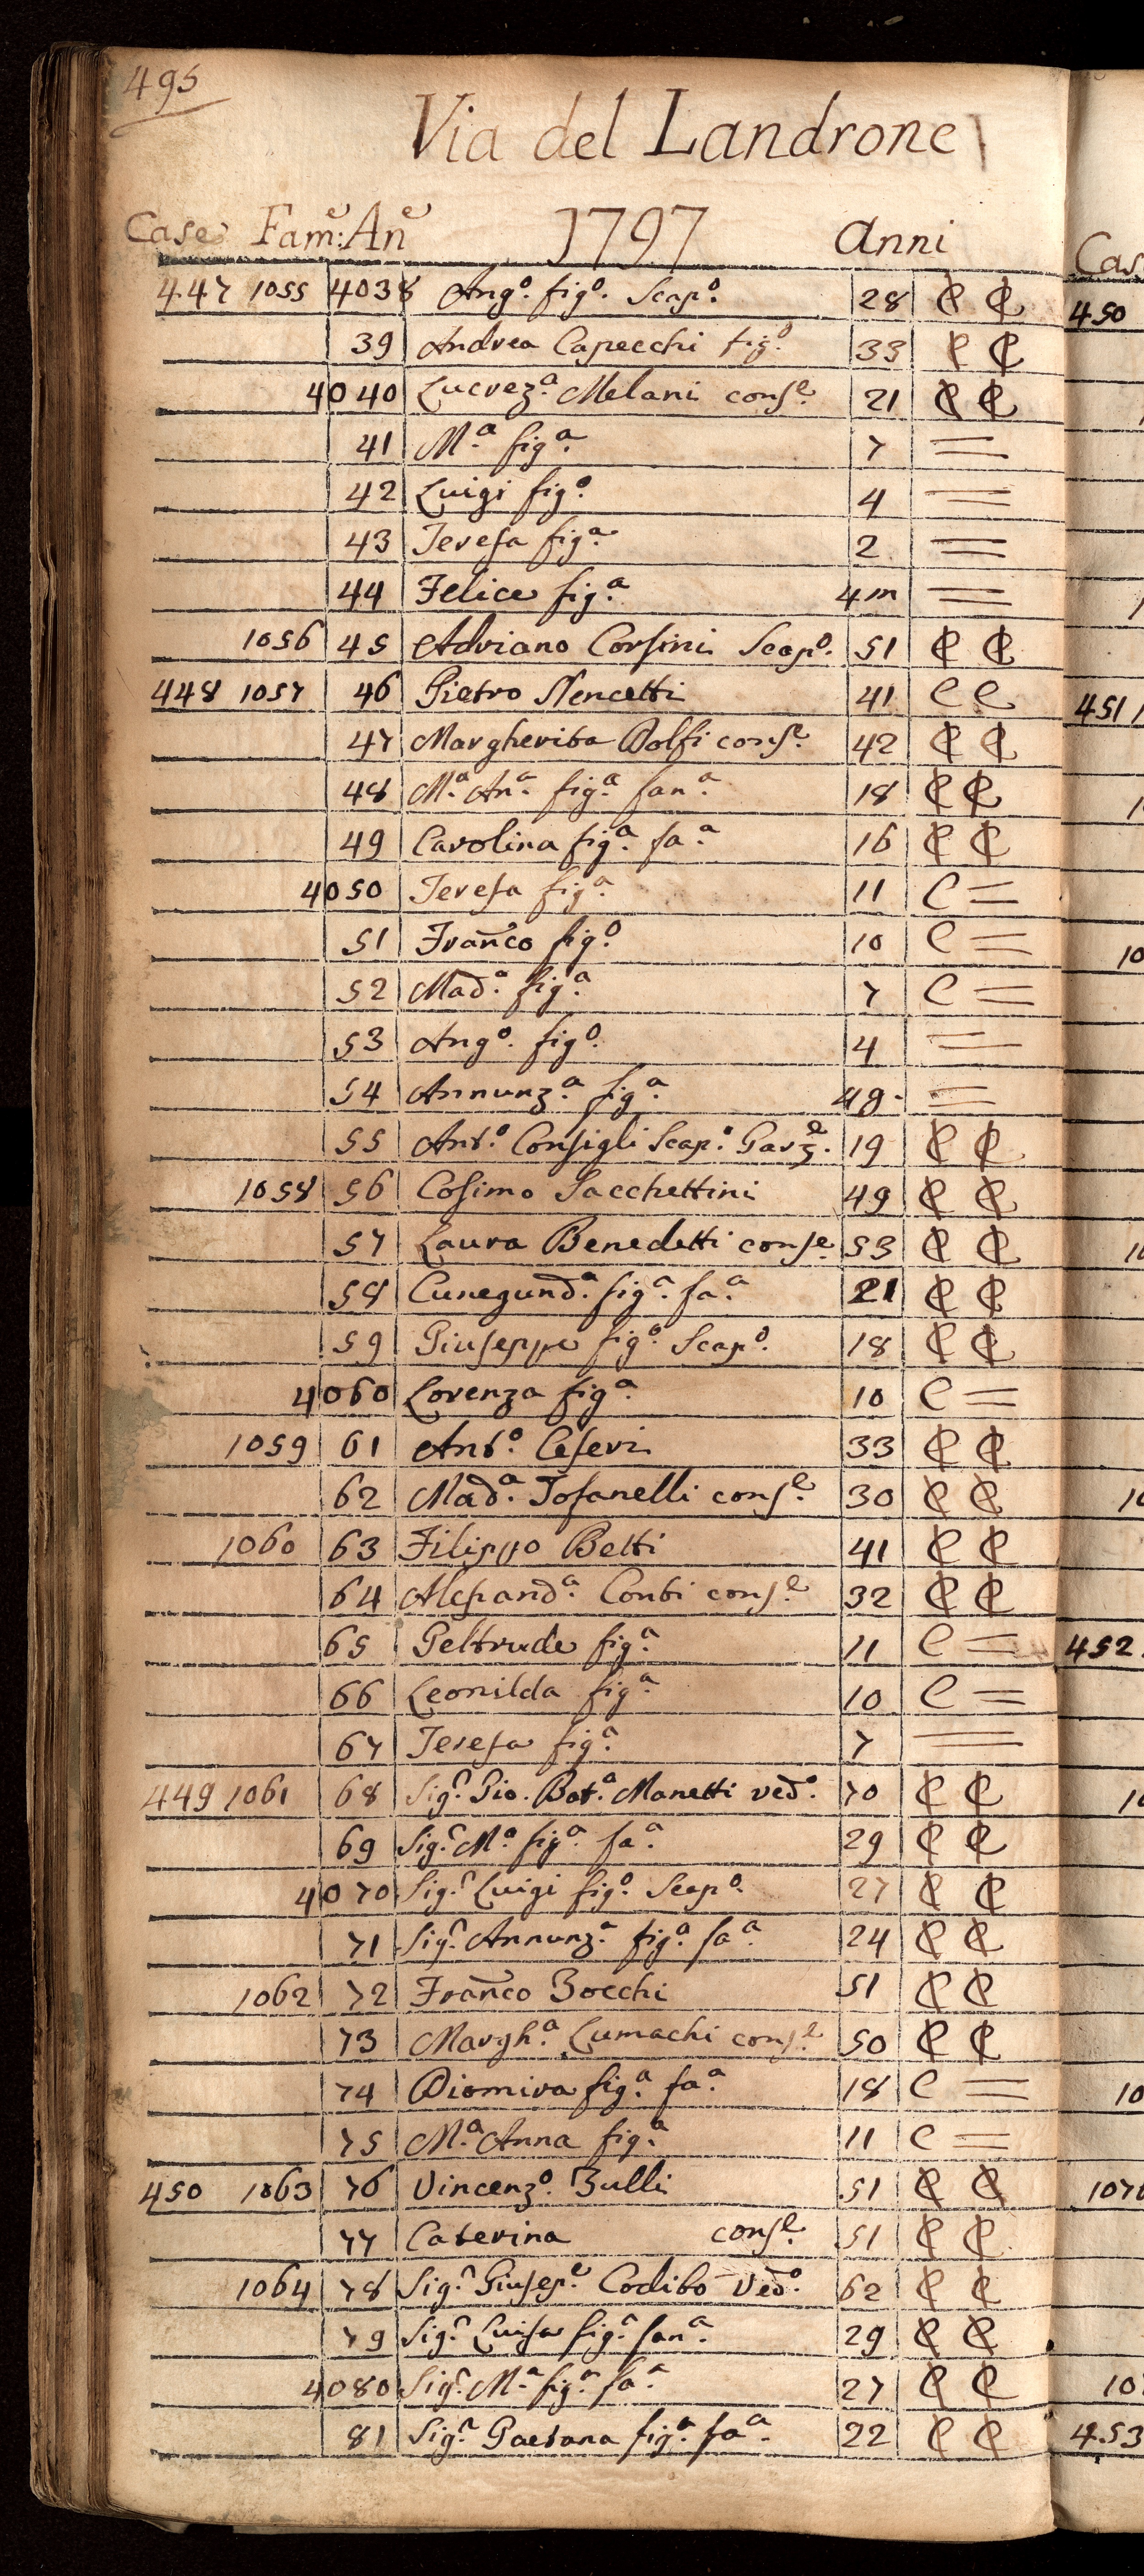 495
Via del Landrone
Case Fam:e An:e 1797 Anni
447 1055 4038 Ang.o fig.o Scap.o 28 C C
39 Andrea Capecchi fig.o 33 C C
4040 Lucrez.a Melani cons.e 21 C C
41 M.a fig.a 7 =
42 Luigi fig.o 4 =
43 Teresa fig.a 2 =
44 Felice fig.a 4m =
1056 45 Adriano Corsini Scap.o 51 C C
448 1057 46 Pietro Nencetti 41 C C
47 Margherita Dolfi cons.e 42 C C
48 M.a An.a fig.a fan.a 18 C C
49 Carolina fig.a fa.a 16 C C
4050 Teresa fig.a 11 C =
51 Fran̄co fig.o 10 C =
52 Mad.a fig.a 7 C =
53 Ang.o fig.o 4 =
54 Annunz.a fig.a 4g. =
55 Ant.o Consigli Scap.o Garz.e 19 C C
1058 56 Cosimo Sacchettini 49 C C
57 Laura Benedetti cons.e 53 C C
58 Cunegund.a fig.a fa.a 21 C C
59 Giuseppe fig.o Scap.o 18 C C
4060 Lorenza fig.a 10 C =
1059 61 Ant.o Ceseri 33 C C
62 Mad.a Tofanelli cons.e 30 C C
1060 63 Filippo Betti 41 C C
64 Alesand.a Conti cons.e 32 C C
65 Geltrude fig.a 11 C =
66 Leonilda fig.a 10 C =
67 Teresa fig.a 7 =
449 1061 68 Sig.r Gio. Bat.a Manetti ved.o 70 C C
69 Sig.r M.a fig.a fa.a 29 C C
4070 Sig.r Luigi fig.o Scap.o 27 C C
71 Sig.r Annunz.a fig.a fa.a 24 C C
1062 72 Fran̄co Bocchi 51 C C
73 Margh.a Lumachi cons.e 50 C C
74 Diomira fig.a fa.a 18 C =
75 M.a Anna fig.a 11 C =
450 1063 76 Vincenz.o Bulli 51 C C
77 Caterina cons.e 51 C C
1064 78 Sig.r Giusep.e Codibò Ved.o 62 C C
79 Sig.r Luisa fig.a fan.a 29 C C
4080 Sig.r M.a fig.a fa.a 27 C C
81 Sig.r Gaetana fig.a fa.a 22 C C
Cas
450
451
452
453